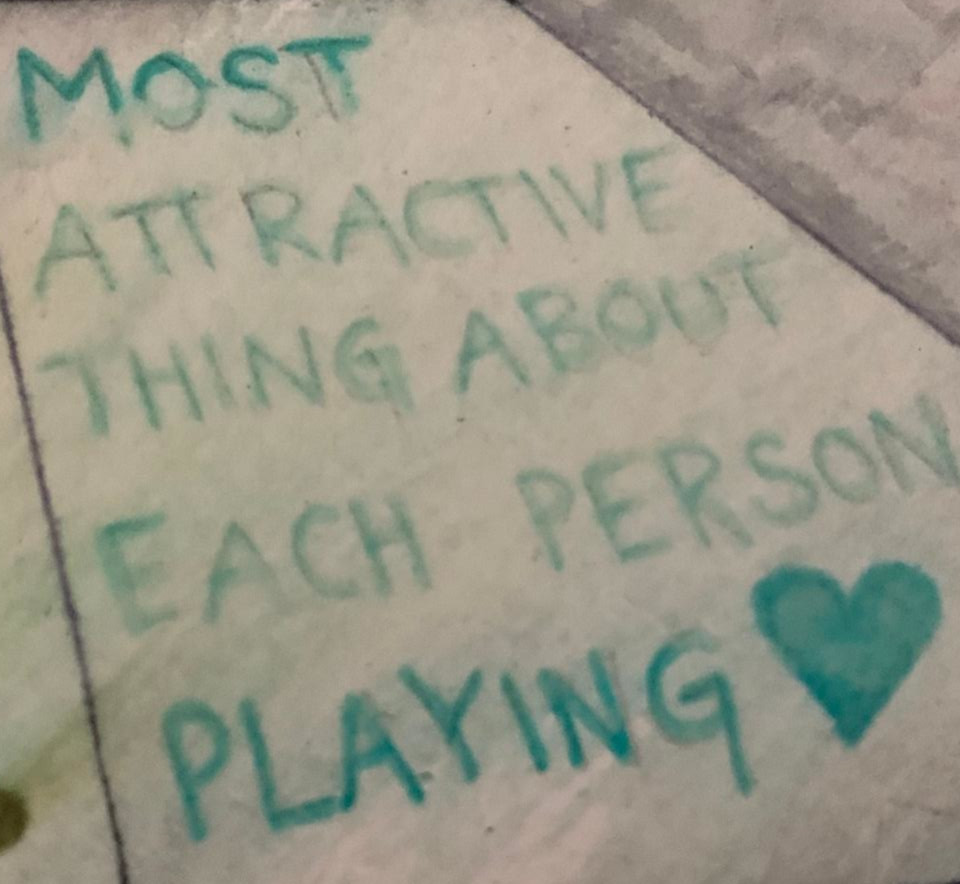 MOST
ATTRACTIVE
THING ABOUT
EACH PERSON
PLAYING